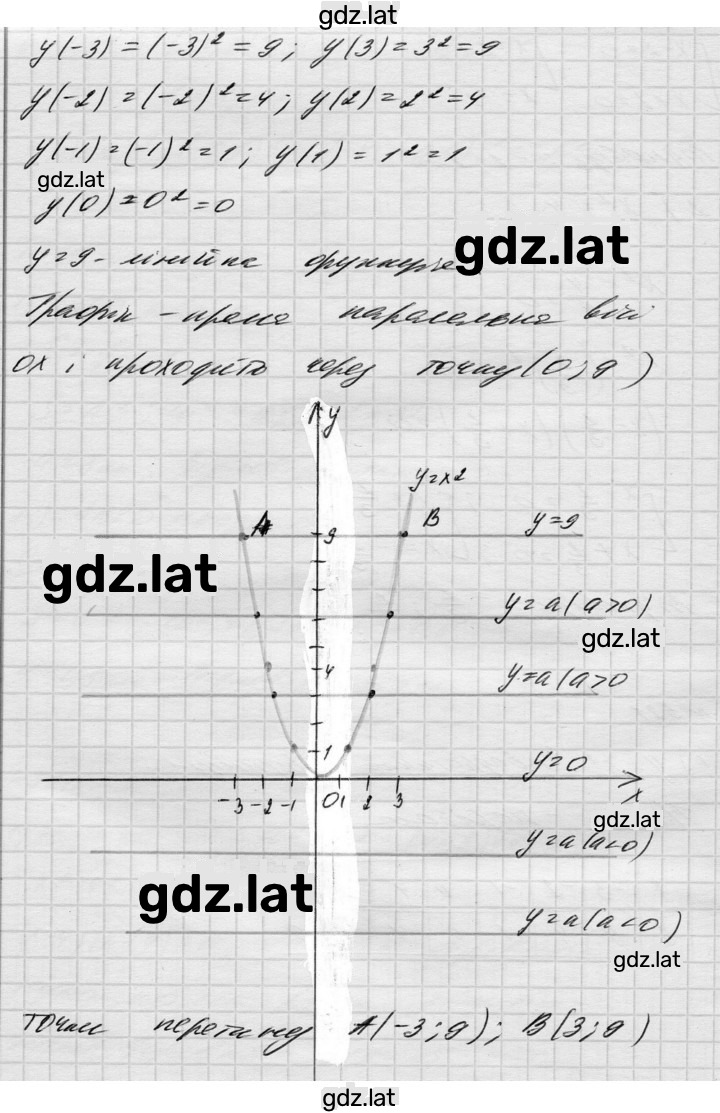 gdz.lat
y(-3) = (-3)² = 9; y(3) = 3² = 9
y(-2) = (-2)² = 4; y(2) = 2² = 4
y(-1) = (-1)² = 1; y(1) = 1² = 1
gdz.lat
y(0) = 0² = 0
gdz.lat
y = 9 - лінійна функція
Графік - пряма паралельна вісі
ox і проходить через точку (0; 9)
y
y = x2
A
B
y = 9
9
gdz.lat
y = a (a > 0)
gdz.lat
4
y = a (a > 0
1
y = 0
-3 -2 -1 0 1 2 3 x
gdz.lat
y = a (a < 0)
gdz.lat
y = a (a < 0)
gdz.lat
Точки перетину A(-3; 9); B(3; 9)
gdz.lat